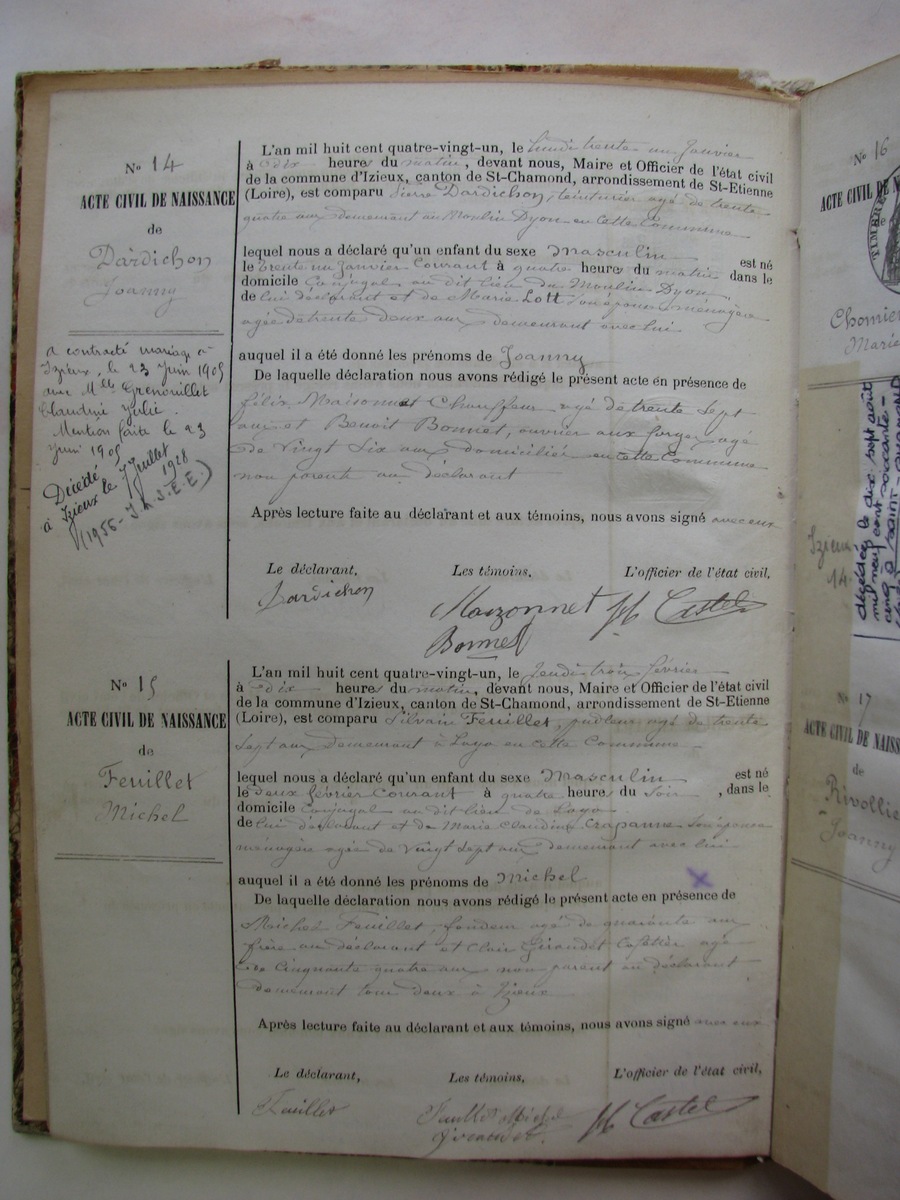 N° 14
ACTE CIVIL DE NAISSANCE
de
Dardichon
Joanny
a contracté mariage à
Izieux, le 23 Juin 1905
avec Mlle Grenouillet
Claudine Julie.
Mention faite le 23
Juin 1905
Décédé
à Izieux le 7 Juillet
1928
(1956 - I.N.S.E.E.)
L'an mil huit cent quatre-vingt-un, le lundi trente un Janvier
à dix heures du matin, devant nous, Maire et Officier de l'état civil
de la commune d'Izieux, canton de St-Chamond, arrondissement de St-Etienne
(Loire), est comparu Pierre Dardichon, teinturier agé de trente
quatre ans demeurant au Moulin Dyon en cette Commune
lequel nous a déclaré qu'un enfant du sexe Masculin est né
le trente un Janvier Courant à quatre heures du matin dans le
domicile Conjugal au dit lieu du Moulin Dyon
de lui déclarant et de Marie Lott son épouse ménagère
agée de trente deux ans demeurant avec lui
auquel il a été donné les prénoms de Joanny
De laquelle déclaration nous avons rédigé le présent acte en présence de
félix Maisonnet Chauffeur agé de trente Sept
ans et Benoit Bonnet, ouvrier aux forges agé
de Vingt Six ans domiciliés en cette Commune
non parents au déclarant
Après lecture faite au déclarant et aux témoins, nous avons signé avec eux
Le déclarant, Les témoins, L'officier de l'état civil,
Dardichon Maizonnet Castel
Bonnet
N° 15
ACTE CIVIL DE NAISSANCE
de
Feuillet
Michel
L'an mil huit cent quatre-vingt-un, le Jeudi trois février
à dix heures du matin, devant nous, Maire et Officier de l'état civil
de la commune d'Izieux, canton de St-Chamond, arrondissement de St-Etienne
(Loire), est comparu Silvain Feuillet, pudleur agé de trente
Sept ans demeurant à Layo en cette Commune
lequel nous a déclaré qu'un enfant du sexe Masculin est né
le deux février Courant à quatre heures du Soir, dans le
domicile Conjugal au dit lieu de Layo
de lui déclarant et de Marie Claudine Crapanne Son épouse
menagère agée de Vingt Sept ans demeurant avec lui
auquel il a été donné les prénoms de Michel
De laquelle déclaration nous avons rédigé le présent acte en présence de
Michel Feuillet, fondeur agé de quarante ans
frère au déclarant et Clair Giraudet Cafetier agé
de Cinquante quatre ans non parent au déclarant
demeurant tous deux à Izieux
Après lecture faite au déclarant et aux témoins, nous avons signé avec eux
Le déclarant, Les témoins, L'officier de l'état civil,
Feuillet Feuillet Michel Castel
Giraudet
N° 16
ACTE CIVIL DE N
de
TIMBRE
Chomier
Marie
décédée le dix sept août
mil neuf cent soixante -
cinq à Saint-Chamond
Izieux
14
N° 17
ACTE CIVIL DE NAISS
de
Rivollie
Joanny